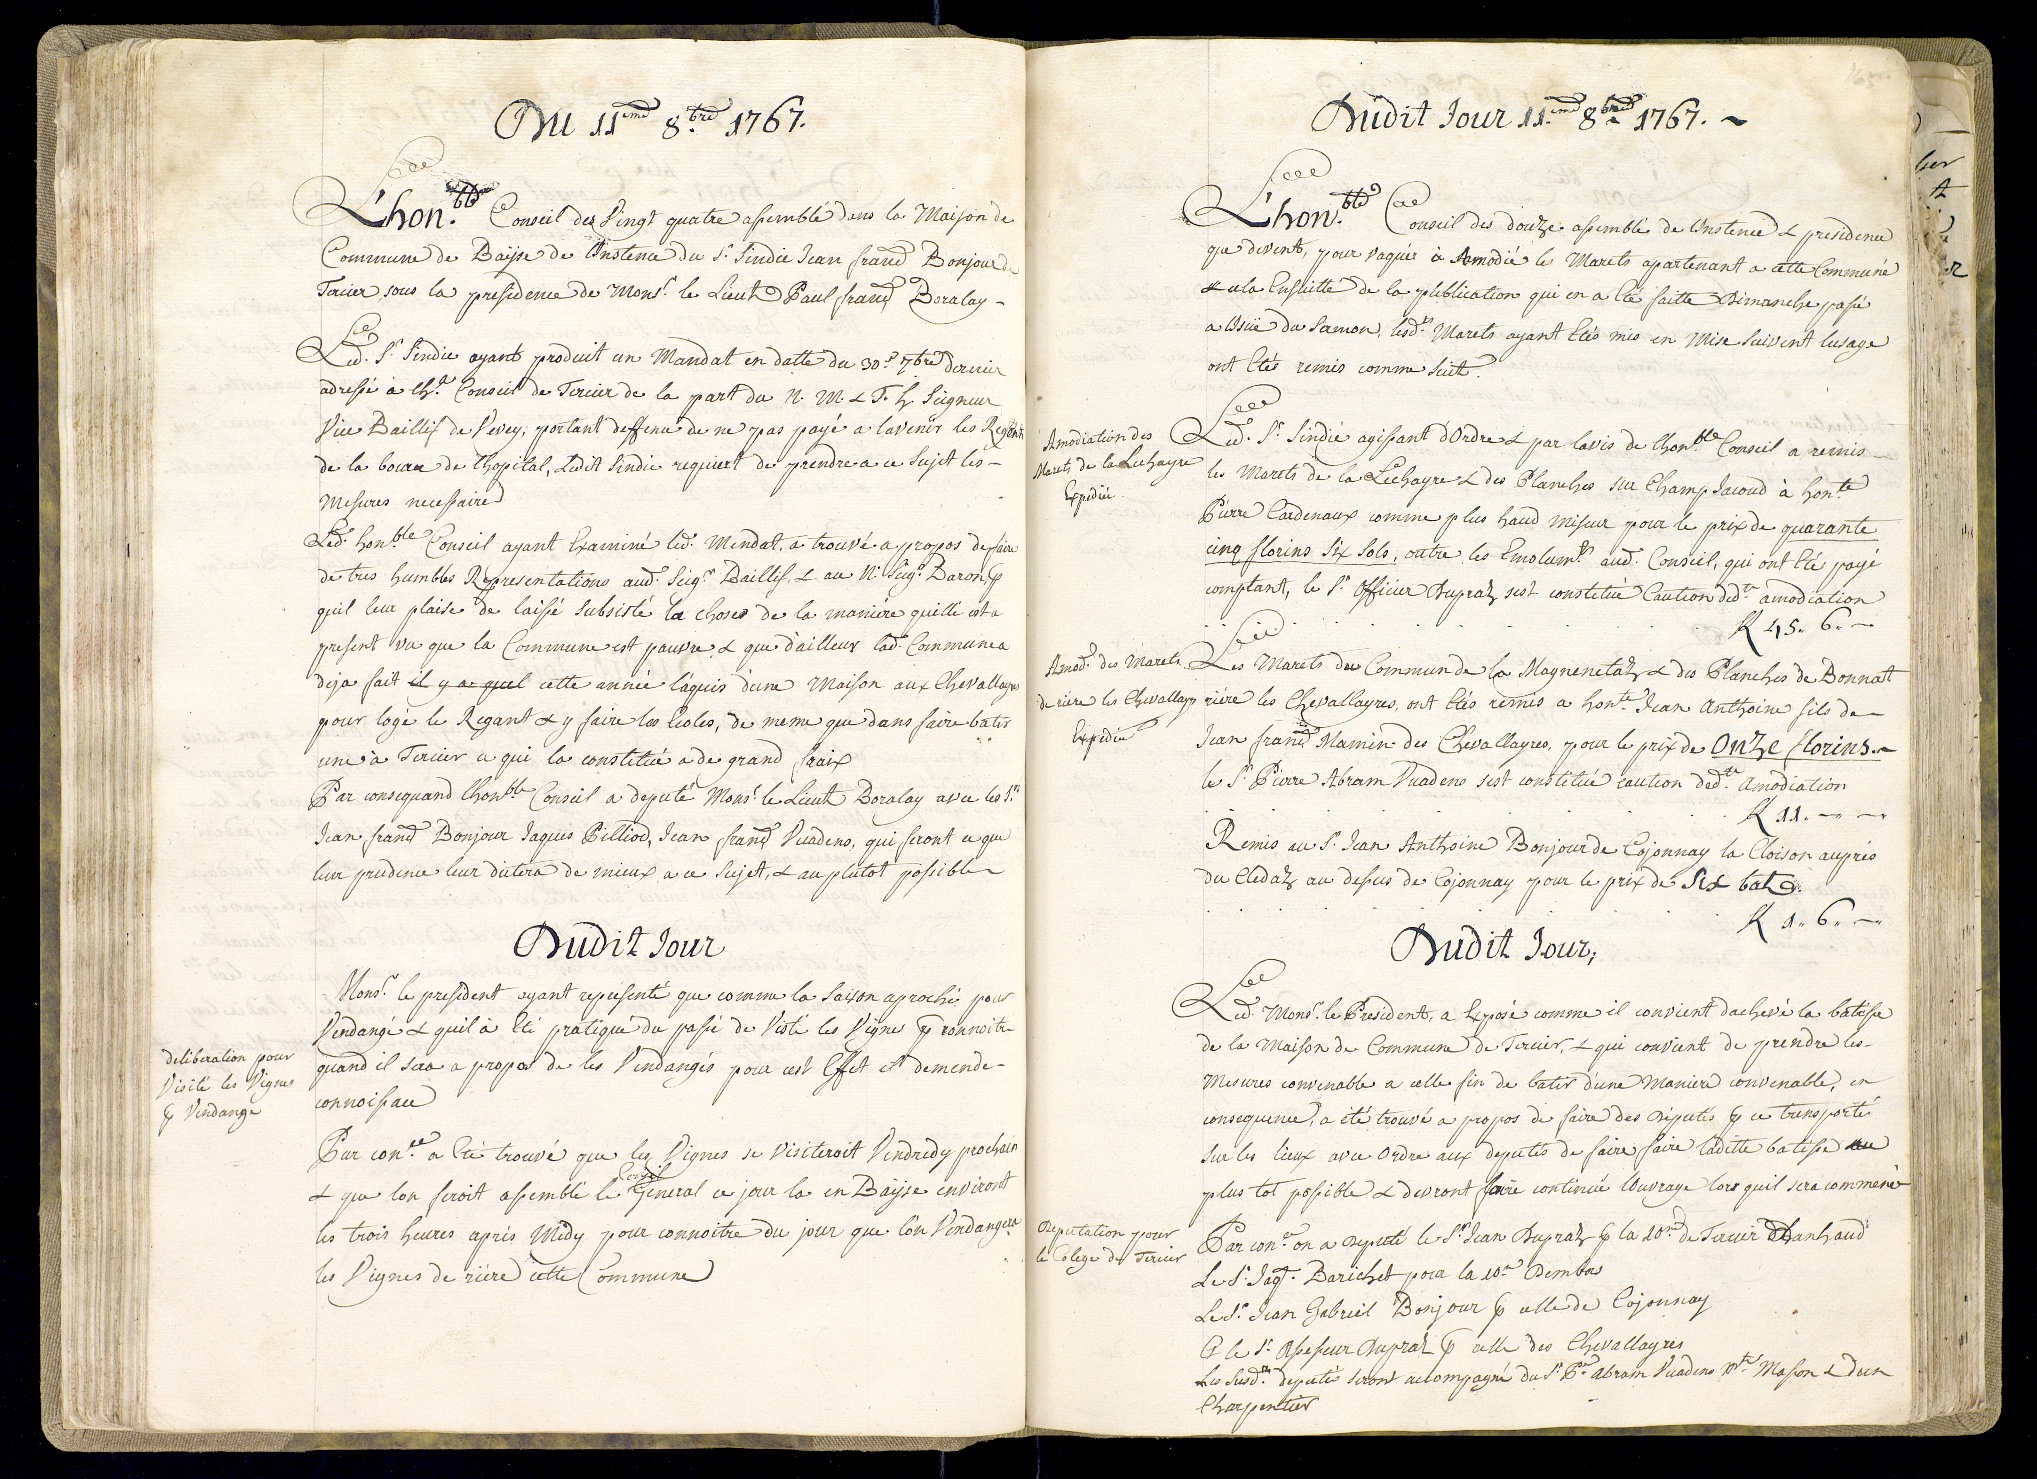 Du 11.eme 8.bre 1767.
L'hon.ble Conseil des Vingt quatre assemblé dans la Maison de
Commune de Baÿse de L'instence du S.r Sindic Jean franç Bonjour de
Tercier sous la presidence de Mons.r le Lieut Paul franç Boralay -
Led. S.r Sindic ayant produit un Mandat en datte du 30.e 7bre dernier
adressé à lh.d Conseil de Tercier de la part du N. M. & T. h. Seigneur
Vice Baillif de Vevey, portant deffence de ne pas payé a lavenir les Regents
de la bource de lhopital, Ledit Sindic requiert de prendre a ce Sujet les -
Mesures necessaire
Led. hon.ble Conseil ayant Examiné led. Mendat, a trouvé a propos de faire
de tres humbles Representations aud. Seig.r Baillif, & au N. Seig.r Baron p.
quil leur plaise de laissé Subsisté la choses de la maniére quelle est a
present vu que la Commune est pauvre, & que dailleur lad. Commune a
deja fait il y a quel cette année láquis dune Maison aux Chevallayres
pour logé le Regant & y faire les Ecoles, de meme que dans faire batir
une à Tercier ce qui la constitué a de grand fraix
Par consequand lhon.ble Conseil a deputé Mons.r le Lieut Boralay avec les S.rs
Jean franç Bonjour Jaques Pilliod, Jean franç Vuadens, qui feront ce que
leur prudence leur dictera de mieux a ce Sujet, & au plutot possible
Dudit Jour
Mons.r le president ayant representé que comme la Saison aproche pour
Vendangé & quil à été pratiqué du passé de Visté les Vignes p. connoitre
quand il sera a propos de les Vendangés pour cest Effet il demende -
connoissance
deliberation pour
Visité les Vignes
p. Vendange
Par con.ce a été trouvé que les Vignes se Visiteroit Vendredy prochain
& que lon feroit assemblé le Conseil General ce jour la en Baÿse environt
les trois heures aprés Midy pour connoitre du jour que lon Vendangera
les Vignes de riére cette Commune
Dudit Jour 11.eme 8.bre 1767. ~
L'hon.ble Conseil des douze assemblé de L'instence & presidence
que devent, pour vaquér à Amodié les Marets apartenant a cette Commune
& ala Ensuitte de la publication qui en a été faitte Dimanche passé
a Lisüe du Sermon, lesd.ts Marets ayant étés mis en Mise suivent lusage
ont étés remis comme suit.
Amodiation des
Marets de la Lechayre
Expediée.
Led. S.r Sindic agissant d'Ordre & par lavis de lhon.ble Conseil a remis -
les Marets de la Lechayre & des Planches sur Champ Jacoud à hon.te
Pierre Cardenaux comme plus haud miseur pour le prix de quarante
cinq florins Six Sols, outre les Emolum.ts aud. Conseil, qui ont été payé
comptant, le S.r Officier Dupraz sest constitué Caution de d.te amodiation
fl 45. 6. -
Amod. des Marets
de riere les Chevallayres
Expedié
Les Marets du Commun de la Magnenetaz & des Planches de Bonnat
riére les Chevallayres, ont étés remis a hon.te Jean Anthoine fils de -
Jean franç Mamin des Chevallayres, pour le prix de Onze florins. -
le S.r Pierre Abram Vuadens sest constitué caution de d.te Amodiation
fl 11. - -
Remis au S.r Jean Anthoine Bonjour de Cojonnay la Cloison auprés
du Clédaz au dessus de Cojonnay pour le prix de Six batz.
fl 1. 6. -
Dudit Jour,
Led. Mons.r le President, a Exposé comme il convient dachevé la batisse
de la Maison de Commune de Tercier, & qui convient de prendre les -
Mesures convenable a celle fin de batir dune Maniere convenable, en
consequence, a été trouvé a propos de faire des Députés p. ce transporté
Sur les lieux avec Ordre aux deputés de faire faire ladette batisse au
plus tot possible & devront faire continué L'ouvrage lors quil sera commencé
Deputation pour
le Colege de Tercier
Par con.ce on a Deputé le S.r Jean Dupraz p. la 10.ne de Tercier
Le S.r Jaq.s Barichet pour la 10.ne Dembas
Le S.r Jean Gabriel Bonjour p. celle de Cojonnay
& le S.r Assesseur Dupraz p. celle des Chevallayres
Les Susd.ts deputés seront accompagné du S.r P.re Abram Vuadens M.tre Masson & dun
Charpentier